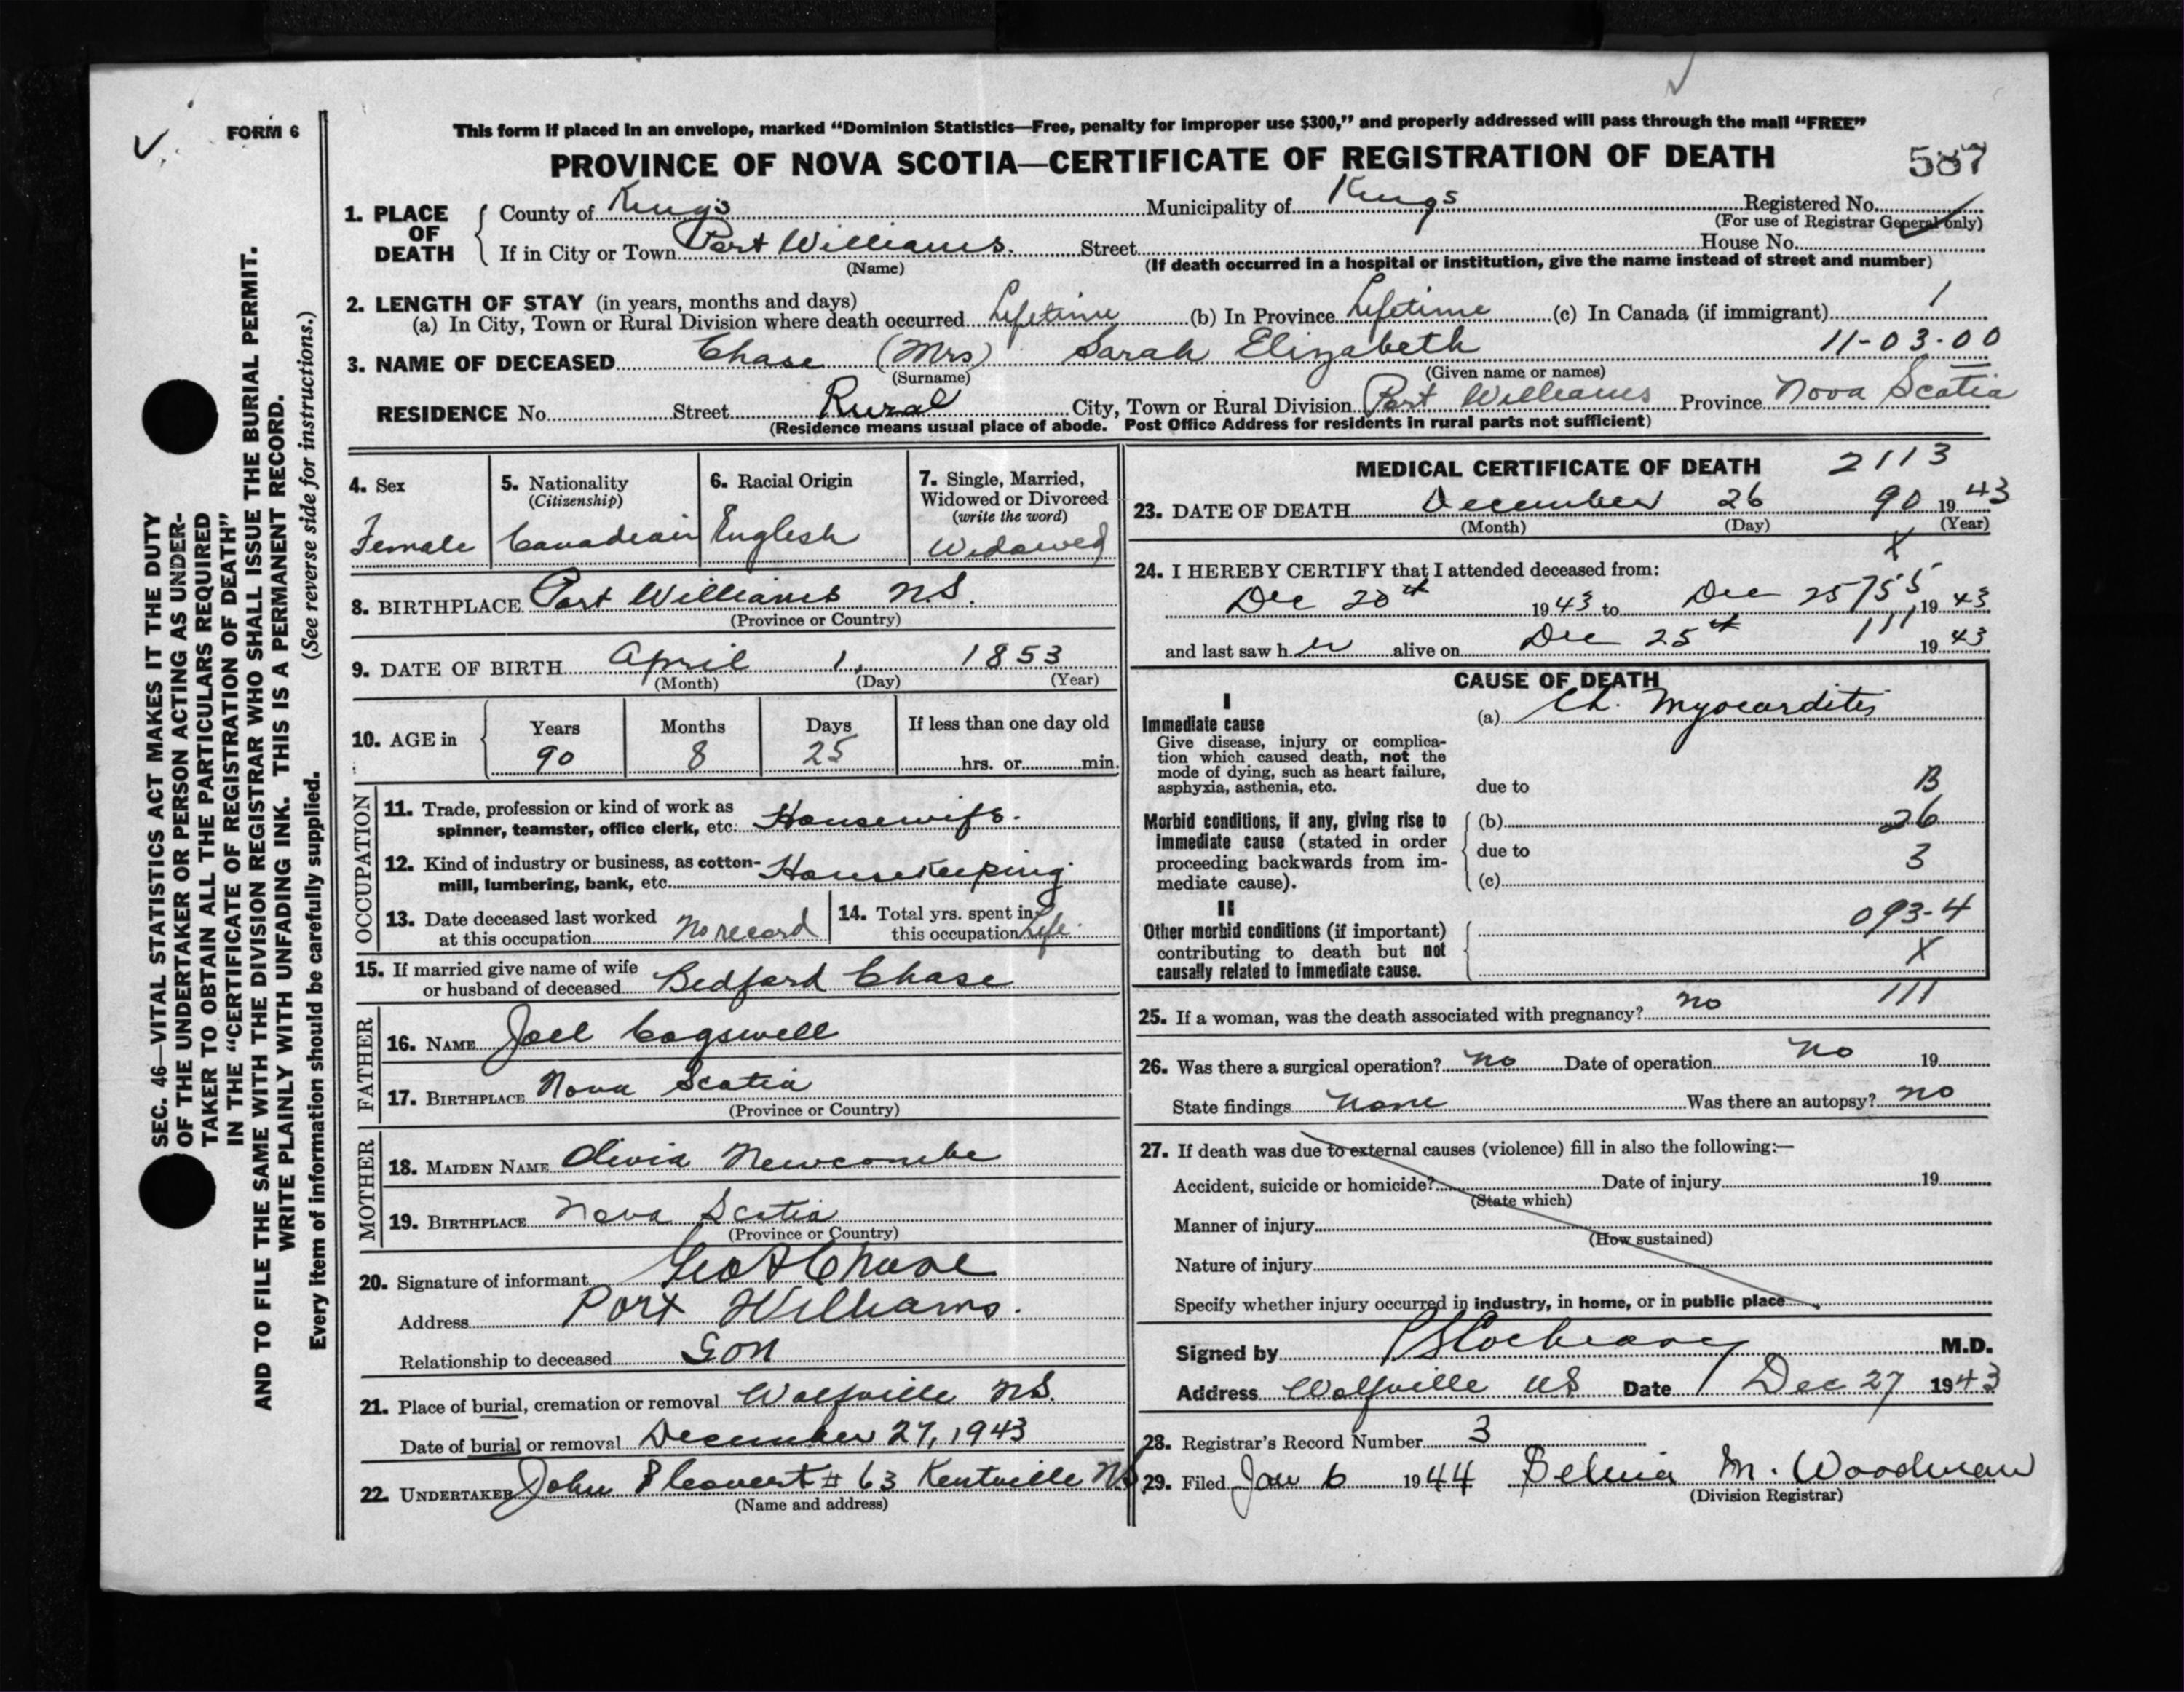 FORM 6
This form if placed in an envelope, marked “Dominion Statistics—Free, penalty for improper use $300,” and properly addressed will pass through the mail “FREE”
PROVINCE OF NOVA SCOTIA—CERTIFICATE OF REGISTRATION OF DEATH 587
1. PLACE OF DEATH County of Kings Municipality of Kings Registered No.
(For use of Registrar General only)
If in City or Town Port Williams. Street House No.
(Name) (If death occurred in a hospital or institution, give the name instead of street and number)
2. LENGTH OF STAY (in years, months and days)
(a) In City, Town or Rural Division where death occurred Lifetime (b) In Province Lifetime (c) In Canada (if immigrant) 1
3. NAME OF DECEASED Chase (Mrs) Sarah Elizabeth 11-03-00
(Surname) (Given name or names)
RESIDENCE No. Street Rural City, Town or Rural Division Port Williams Province Nova Scotia
(Residence means usual place of abode. Post Office Address for residents in rural parts not sufficient)
4. Sex
Female
5. Nationality
(Citizenship)
Canadian
6. Racial Origin
English
7. Single, Married,
Widowed or Divorced
(write the word)
Widowed
8. BIRTHPLACE Port Williams N.S.
(Province or Country)
9. DATE OF BIRTH April 1, 1853
(Month) (Day) (Year)
10. AGE in Years Months Days If less than one day old
90 8 25 hrs. or min.
OCCUPATION
11. Trade, profession or kind of work as
spinner, teamster, office clerk, etc. Housewife.
12. Kind of industry or business, as cotton-
mill, lumbering, bank, etc. Housekeeping
13. Date deceased last worked
at this occupation No record
14. Total yrs. spent in
this occupation Life.
15. If married give name of wife
or husband of deceased Bedford Chase
FATHER
16. NAME Joel Cogswell
17. BIRTHPLACE Nova Scotia
(Province or Country)
MOTHER
18. MAIDEN NAME Olivia Newcombe
19. BIRTHPLACE Nova Scotia
(Province or Country)
20. Signature of informant Geo A Chase
Address Port Williams.
Relationship to deceased Son
21. Place of burial, cremation or removal Wolfville N.S.
Date of burial or removal December 27, 1943
22. UNDERTAKER John # 63 Kentville N.S.
(Name and address)
MEDICAL CERTIFICATE OF DEATH 2113
23. DATE OF DEATH December 26 90 1943
(Month) (Day) (Year)
X
24. I HEREBY CERTIFY that I attended deceased from:
Dec 20th 1943 to Dec 25 755, 1943
and last saw her alive on Dec 25th 111 1943
CAUSE OF DEATH
I
Immediate cause
Give disease, injury or complica-
tion which caused death, not the
mode of dying, such as heart failure,
asphyxia, asthenia, etc.
(a) Ch. Myocarditis
due to B
Morbid conditions, if any, giving rise to
immediate cause (stated in order
proceeding backwards from im-
mediate cause).
(b) 26
due to 3
(c)
II
Other morbid conditions (if important)
contributing to death but not
causally related to immediate cause.
093-4
X
25. If a woman, was the death associated with pregnancy? no 111
26. Was there a surgical operation? no Date of operation no 19
State findings none Was there an autopsy? no
27. If death was due to external causes (violence) fill in also the following:—
Accident, suicide or homicide? Date of injury 19
(State which)
Manner of injury
(How sustained)
Nature of injury
Specify whether injury occurred in industry, in home, or in public place
Signed by Cochrane M.D.
Address Wolfville NS Date Dec 27 1943
28. Registrar's Record Number 3
29. Filed Jan 6 1944 M. Woodman
(Division Registrar)
SEC. 46—VITAL STATISTICS ACT MAKES IT THE DUTY
OF THE UNDERTAKER OR PERSON ACTING AS UNDER-
TAKER TO OBTAIN ALL THE PARTICULARS REQUIRED
IN THE “CERTIFICATE OF REGISTRATION OF DEATH”
AND TO FILE THE SAME WITH THE DIVISION REGISTRAR WHO SHALL ISSUE THE BURIAL PERMIT.
WRITE PLAINLY WITH UNFADING INK. THIS IS A PERMANENT RECORD.
(See reverse side for instructions.)
Every item of information should be carefully supplied.